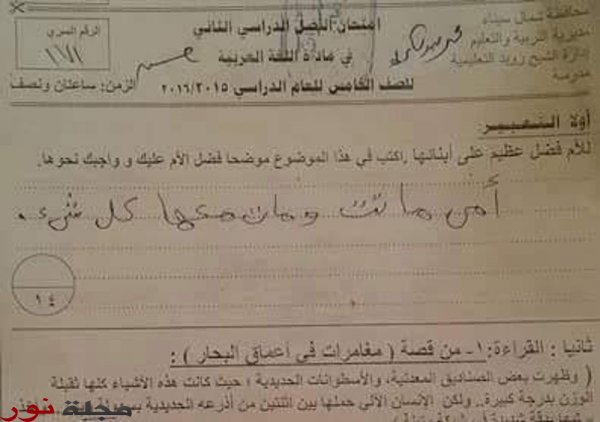 محافظة شمال سيناء
مديرية التربية والتعليم
إدارة الشيخ زويد التعليمية
مدرسة
امتحان الفصل الدراسي الثاني
في مادة اللغة العربية
للصف الخامس للعام الدراسي ٢٠١٦/٢٠١٥
الرقم السري
الزمن: ساعتان ونصف
أولا التعبير:
للأم فضل عظيم على أبنائها .اكتب في هذا الموضوع موضحا فضل الأم عليك و واجبك نحوها.
أمي ماتت ومات معها كل شيء.
١٤
ثانيا : القراءة :١- من قصة ( مغامرات في أعماق البحار ) :
( وظهرت بعض الصناديق المعدنية، والأسطوانات الحديدية ؛ حيث كانت هذه الأشياء كلها ثقيلة
الوزن بدرجة كبيرة.. ولكن الإنسان الآلي حملها بين اثنتين من أذرعه الحديدية
مجلة نور